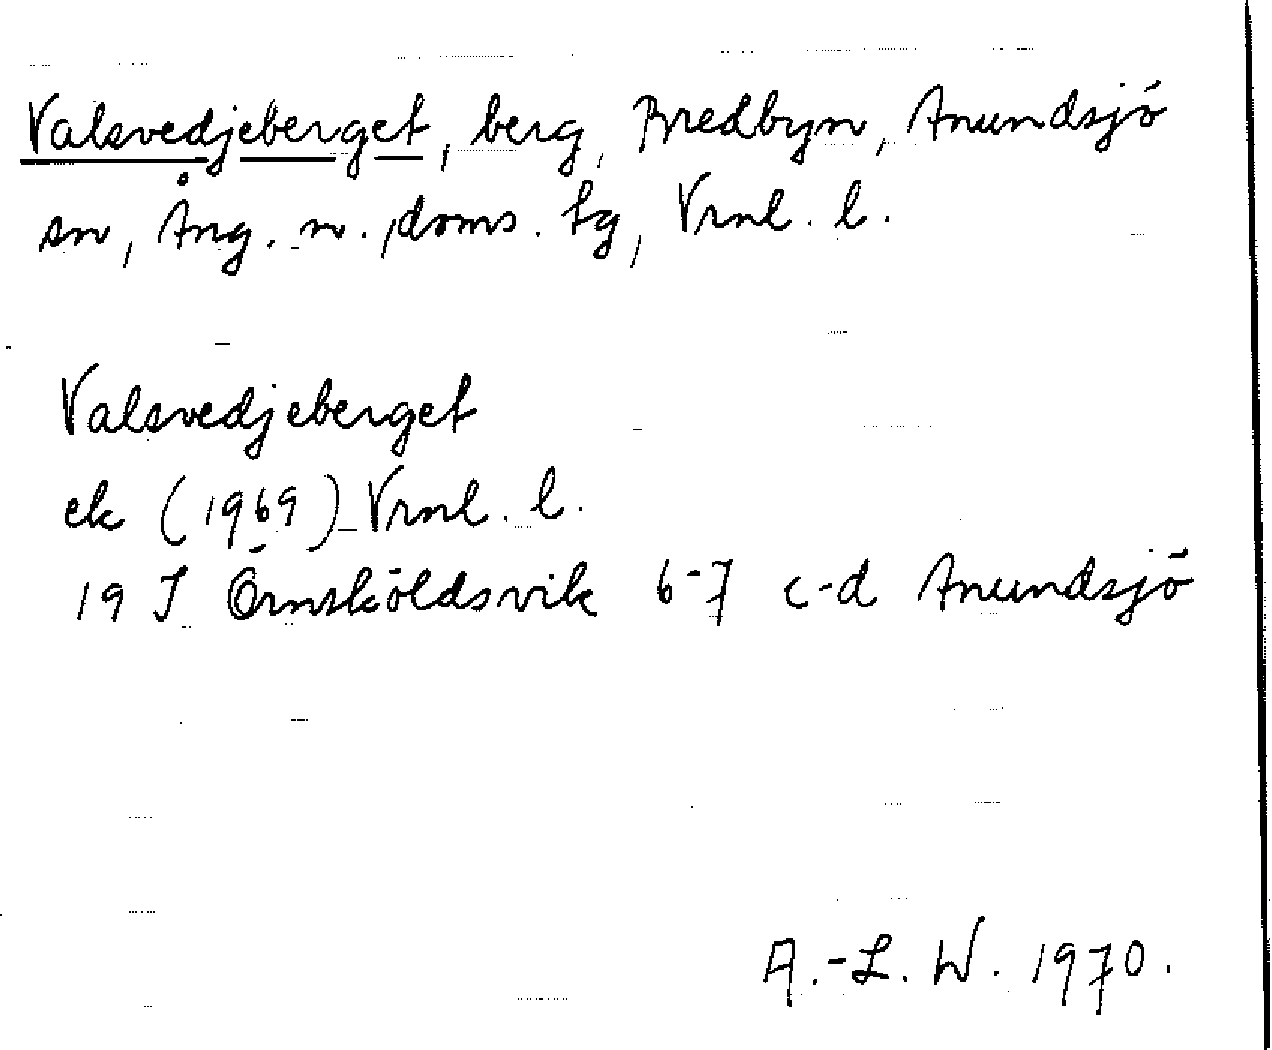 Valsvedjeberget, berg, Bredbyn, Anundsjö
sn, Ång. n. doms. tg, Vrnl. l.
Valsvedjeberget
ek (1969) Vrnl. l.
19 J Örnsköldsvik 6-7 c-d Anundsjö
A.-L. W. 1970.